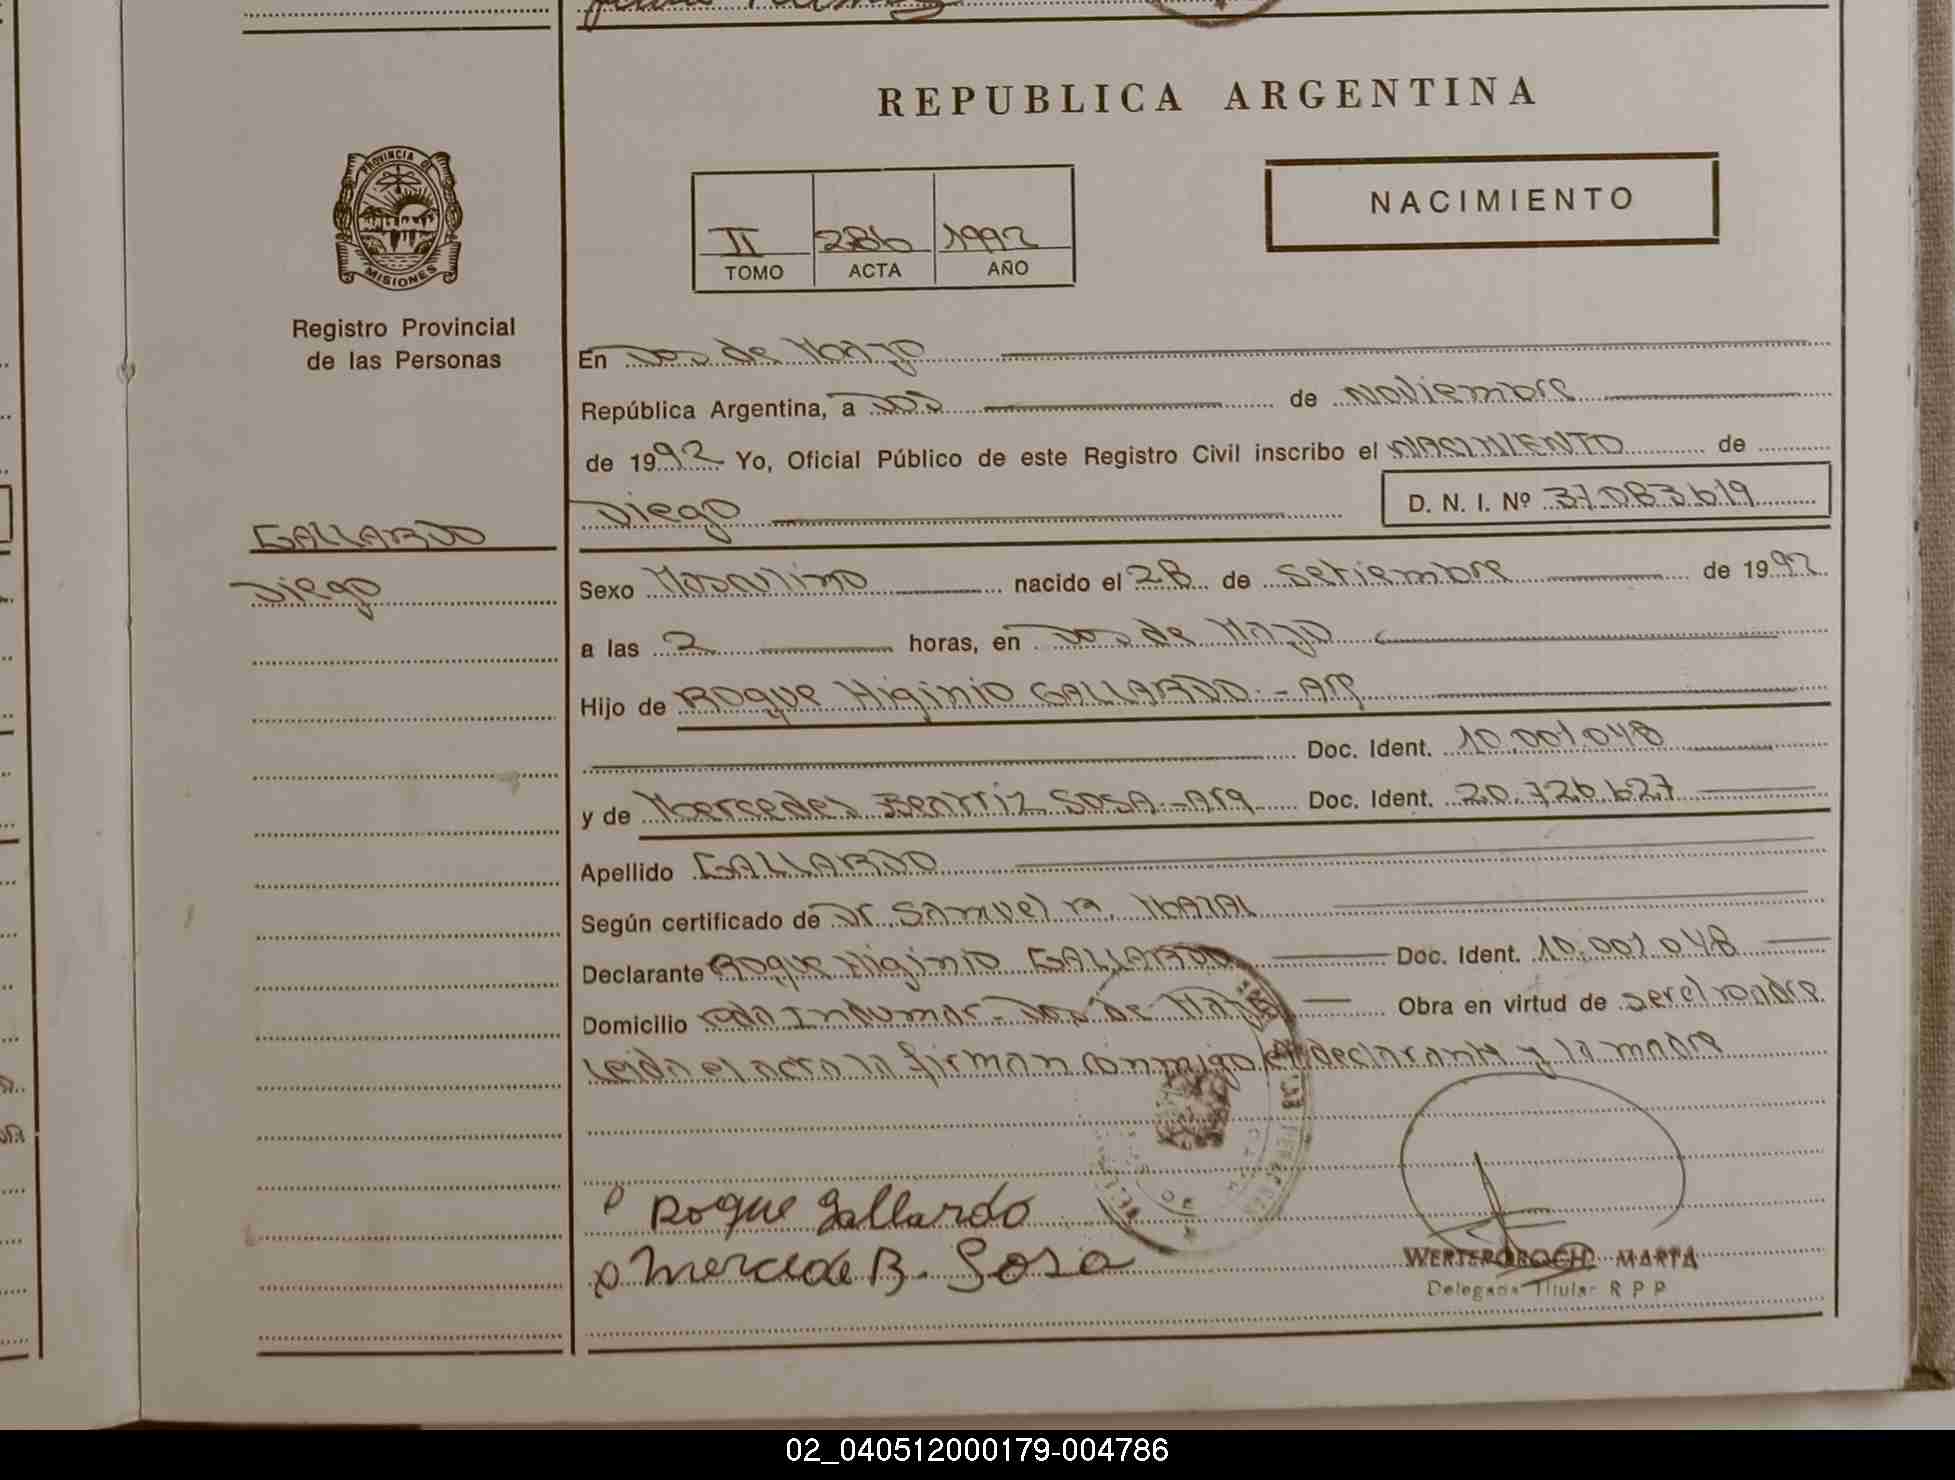 REPUBLICA ARGENTINA
PROVINCIA DE
MISIONES
Registro Provincial
de las Personas
II 286 1992
TOMO ACTA AÑO
NACIMIENTO
En Dos de Mayo
República Argentina, a Dos de Noviembre
de 1992 Yo, Oficial Público de este Registro Civil inscribo el NACIMIENTO de
Diego D. N. I. Nº 37.083.619
GALLARDO
Diego
Sexo Masculino nacido el 28 de Setiembre de 1992
a las 2 horas, en Dos de Mayo
Hijo de Roque Higinio GALLARDO - Arg
Doc. Ident. 10.001.048
y de Mercedes Beatriz SOSA - Arg Doc. Ident. 20.726.627
Apellido GALLARDO
Según certificado de Dr. Samuel
Declarante Roque Higinio GALLARDO Doc. Ident. 10.001.048
Domicilio - Dos de Mayo Obra en virtud de ser el padre
Leida el acta la firman conmigo el declarante y la madre
Roque Gallardo
Mercede B. Sosa
MARTA
Delegada Titular R P P
02_040512000179-004786